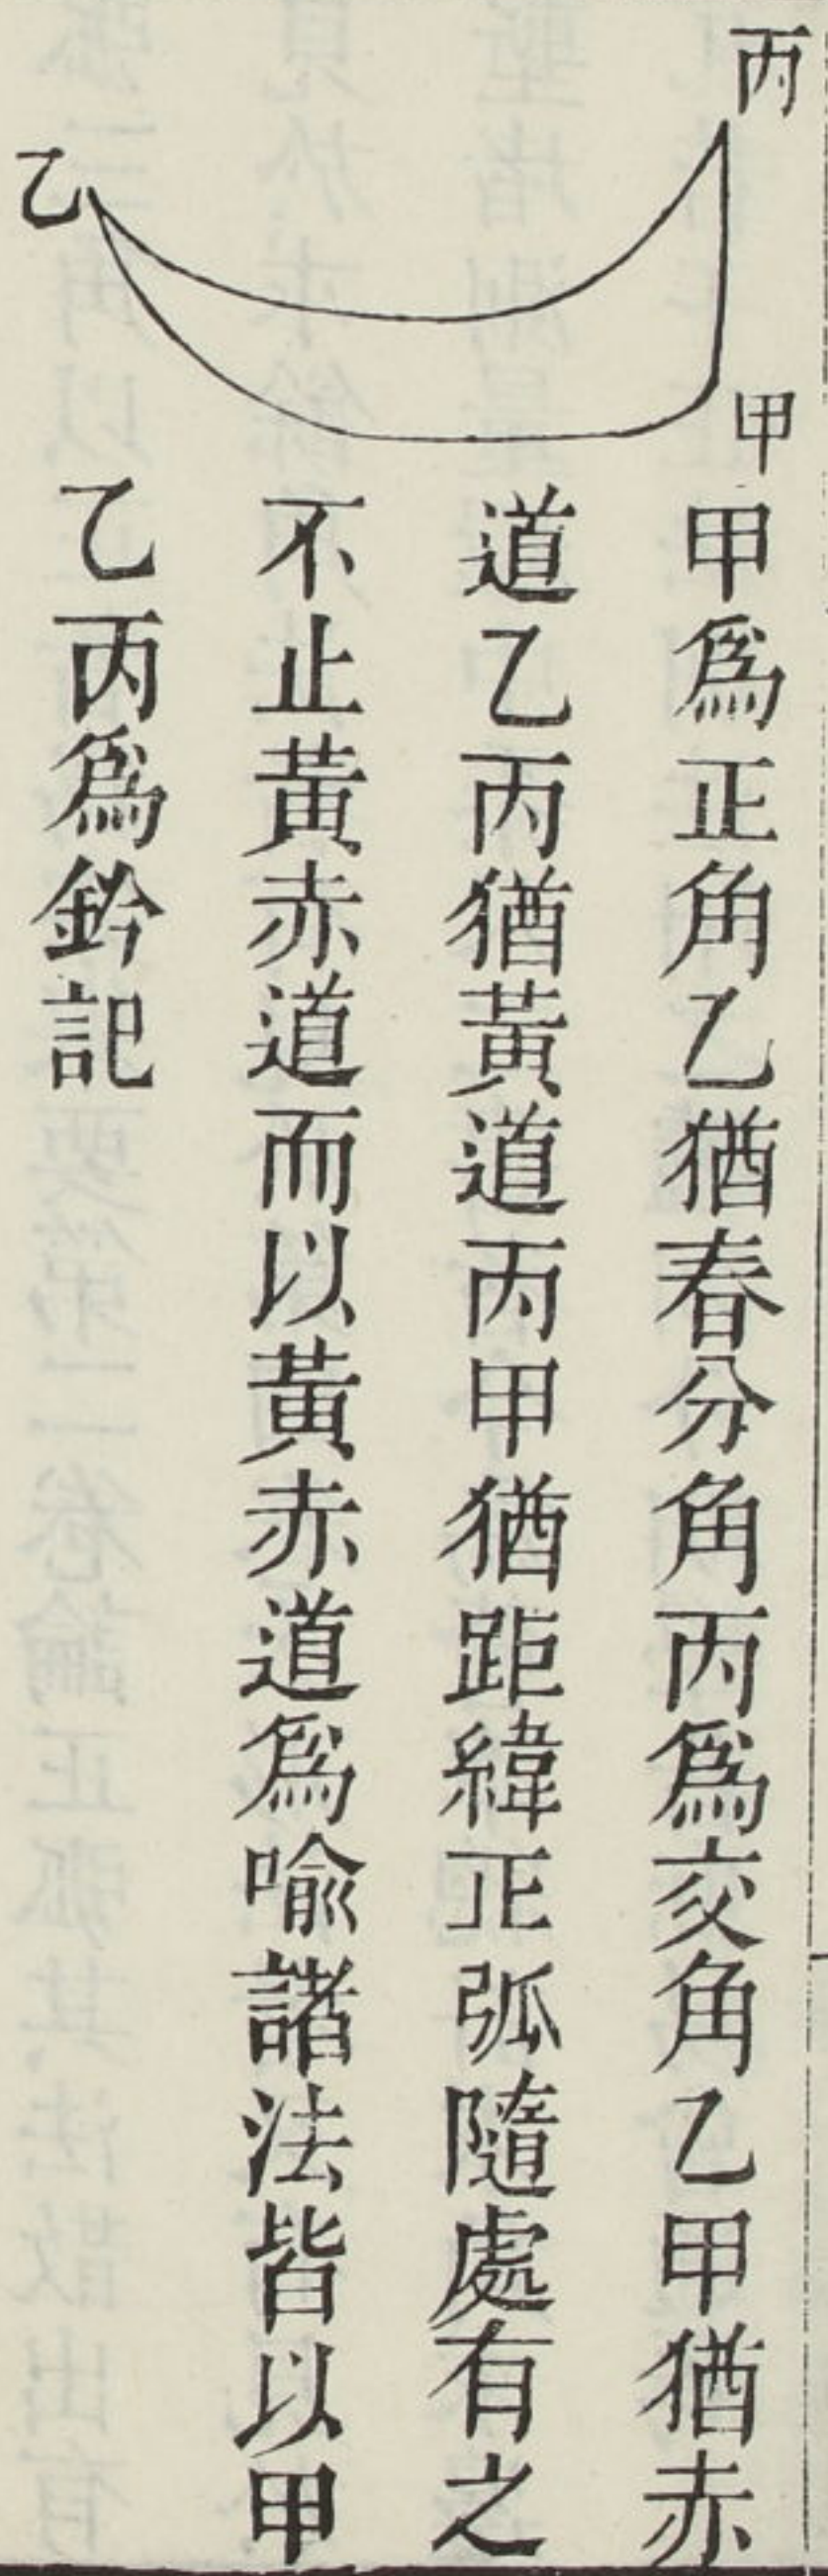 丙
甲
乙
甲爲正角乙猶春分角丙爲交角乙甲猶赤
道乙丙猶黃道丙甲猶距緯正弧隨處有之
不止黃赤道而以黃赤道爲喻諸法皆以甲
乙丙爲鈐記